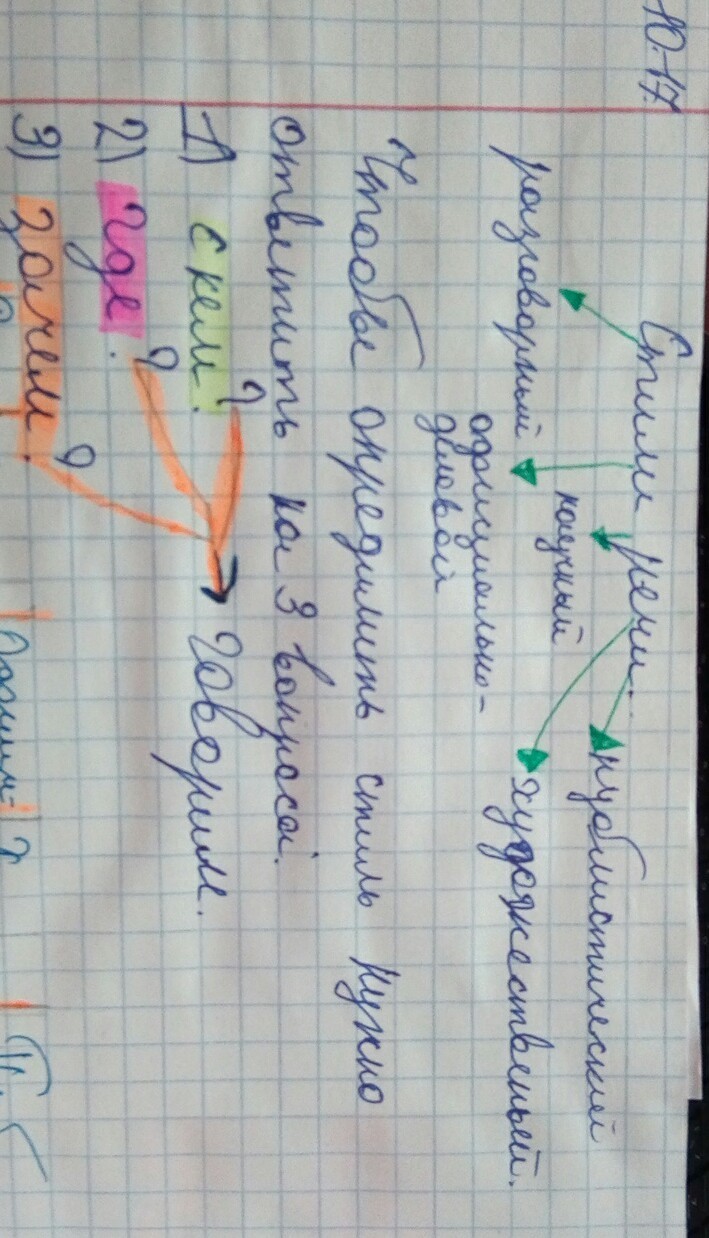 10.17.
Стили речи.
публистический
научный
разговорный
художественный.
официально-
деловой
Чтобы определить стиль нужно
ответить на 3 вопроса.
1) с кем?
Говорим.
2) где?
3) зачем?